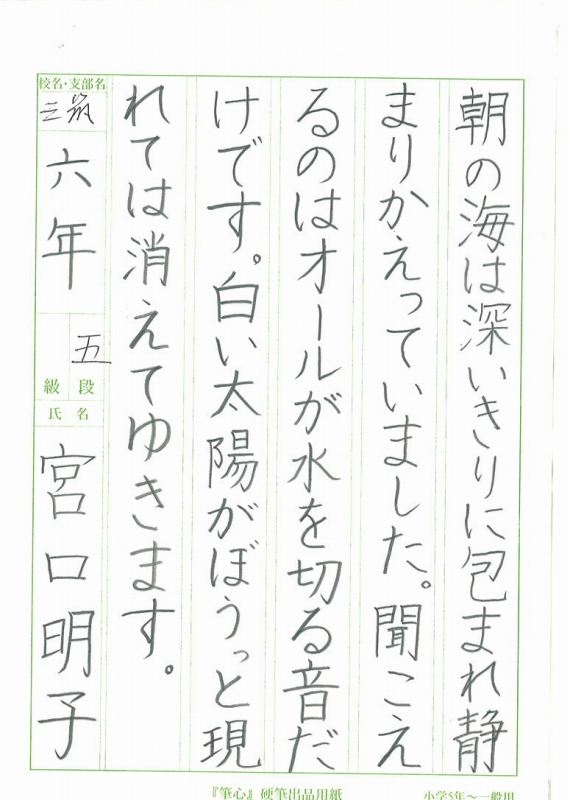 朝の海は深いきりに包まれ静
まりかえっていました。聞こえ
るのはオールが水を切る音だ
けです。白い太陽がぼうっと現
れては消えてゆきます。
校名・支部名
六年
五
級 段
氏 名
宮口明子
『筆心』硬筆出品用紙
小学5年〜一般用